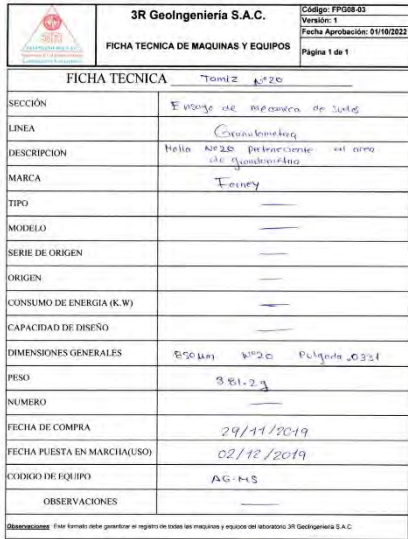 3R GeoIngeniería S.A.C.
FICHA TECNICA DE MAQUINAS Y EQUIPOS
Código: FPG08-03
Versión: 1
Fecha Aprobación: 01/10/2022
Página 1 de 1
FICHA TECNICA Tamiz N°20
SECCIÓN Ensayo de mecanica de suelos
LINEA Granulometria
DESCRIPCION Malla N°20 Perteneciente al area
de granulometria
MARCA Forney
TIPO —
MODELO —
SERIE DE ORIGEN —
ORIGEN —
CONSUMO DE ENERGIA (K.W) —
CAPACIDAD DE DISEÑO —
DIMENSIONES GENERALES 850 µm N°20 Pulgada .0331
PESO 381.2g
NUMERO —
FECHA DE COMPRA 29/11/2019
FECHA PUESTA EN MARCHA(USO) 02/12/2019
CODIGO DE EQUIPO AG-MS
OBSERVACIONES —
Observaciones: Este formato debe garantizar el registro de todas las maquinas y equipos del laboratorio 3R GeoIngenieria S.A.C